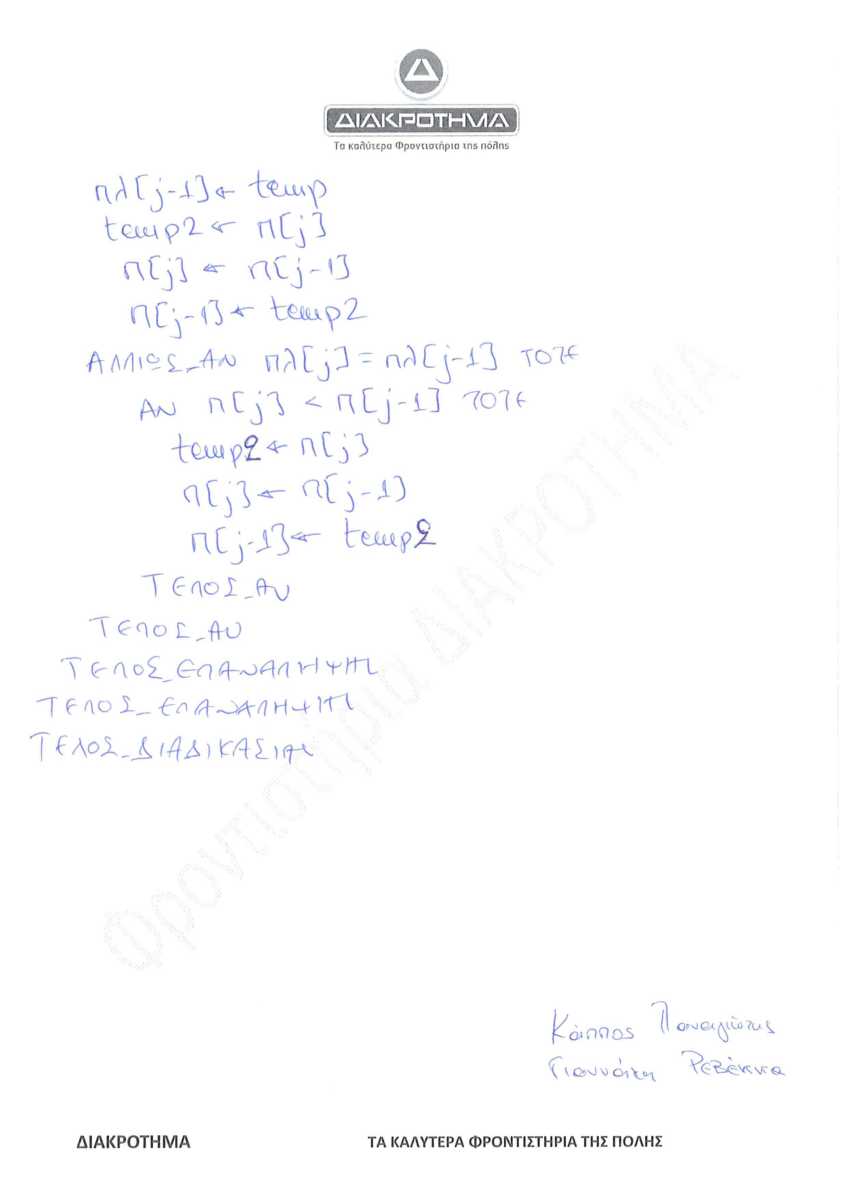 Δ
ΔΙΑΚΡΟΤΗΜΑ
Τα καλύτερα Φροντιστήρια της πόλης
πλ[j-1] ← temp
temp2 ← π[j]
π[j] ← π[j-1]
π[j-1] ← temp2
ΑΛΛΙΩΣ_ΑΝ πλ[j] = πλ[j-1] ΤΟΤΕ
ΑΝ π[j] < π[j-1] ΤΟΤΕ
temp2 ← π[j]
π[j] ← π[j-1]
π[j-1] ← temp2
ΤΕΛΟΣ_ΑΝ
ΤΕΛΟΣ_ΑΝ
ΤΕΛΟΣ_ΕΠΑΝΑΛΗΨΗΣ
ΤΕΛΟΣ_ΕΠΑΝΑΛΗΨΗΣ
ΤΕΛΟΣ_ΔΙΑΔΙΚΑΣΙΑΣ
Φροντιστήρια ΔΙΑΚΡΟΤΗΜΑ
Κάππος Παναγιώτης
Γιαννάκη Ρεβέκκα
ΔΙΑΚΡΟΤΗΜΑ ΤΑ ΚΑΛΥΤΕΡΑ ΦΡΟΝΤΙΣΤΗΡΙΑ ΤΗΣ ΠΟΛΗΣ